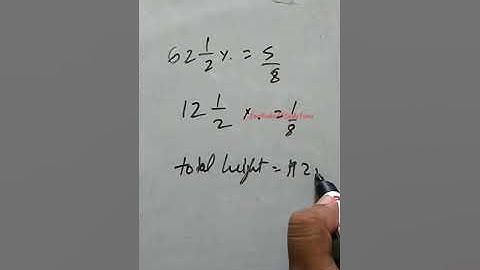 62 1/2 %. = 5/8
12 1/2 %. = 1/8
total height = 192